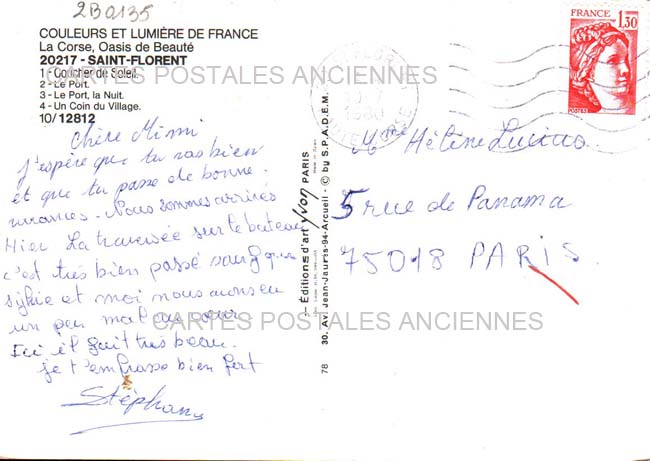 2B0135
COULEURS ET LUMIÈRE DE FRANCE
La Corse, Oasis de Beauté
20217 - SAINT-FLORENT
1 - Coucher de Soleil.
2 - Le Port.
3 - Le Port, la Nuit.
4 - Un Coin du Village.
10/12812
CARTES POSTALES ANCIENNES
Chère Mimi
J'espère que tu vas bien
et que tu passe de bonne
vacances. Nous sommes arrivés
Hier La traversée sur le bateau
c'est très bien passé sauf que
Sylvie et moi nous avons eu
un peu mal au cœur
Ici il fait très beau.
je t'embrasse bien fort
Stéphane
CARTES POSTALES ANCIENNES
78 30, Av. Jean-Jaurès-94-Arcueil - © by S.P.A.D.E.M.
Éditions d'art Yvon PARIS
1980
FRANCE
1,30
POSTES
Mme Hélène
5 rue de Panama
75018 PARIS